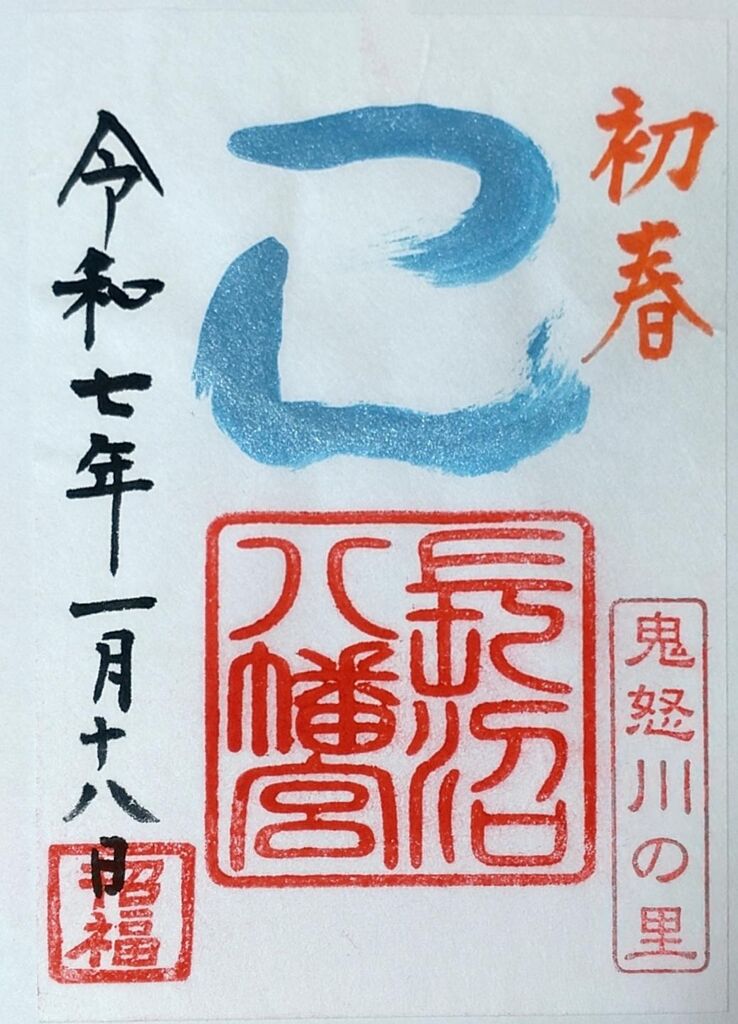 初春
鬼怒川の里
巳
長沼
八幡宮
令和七年一月十八日
招福